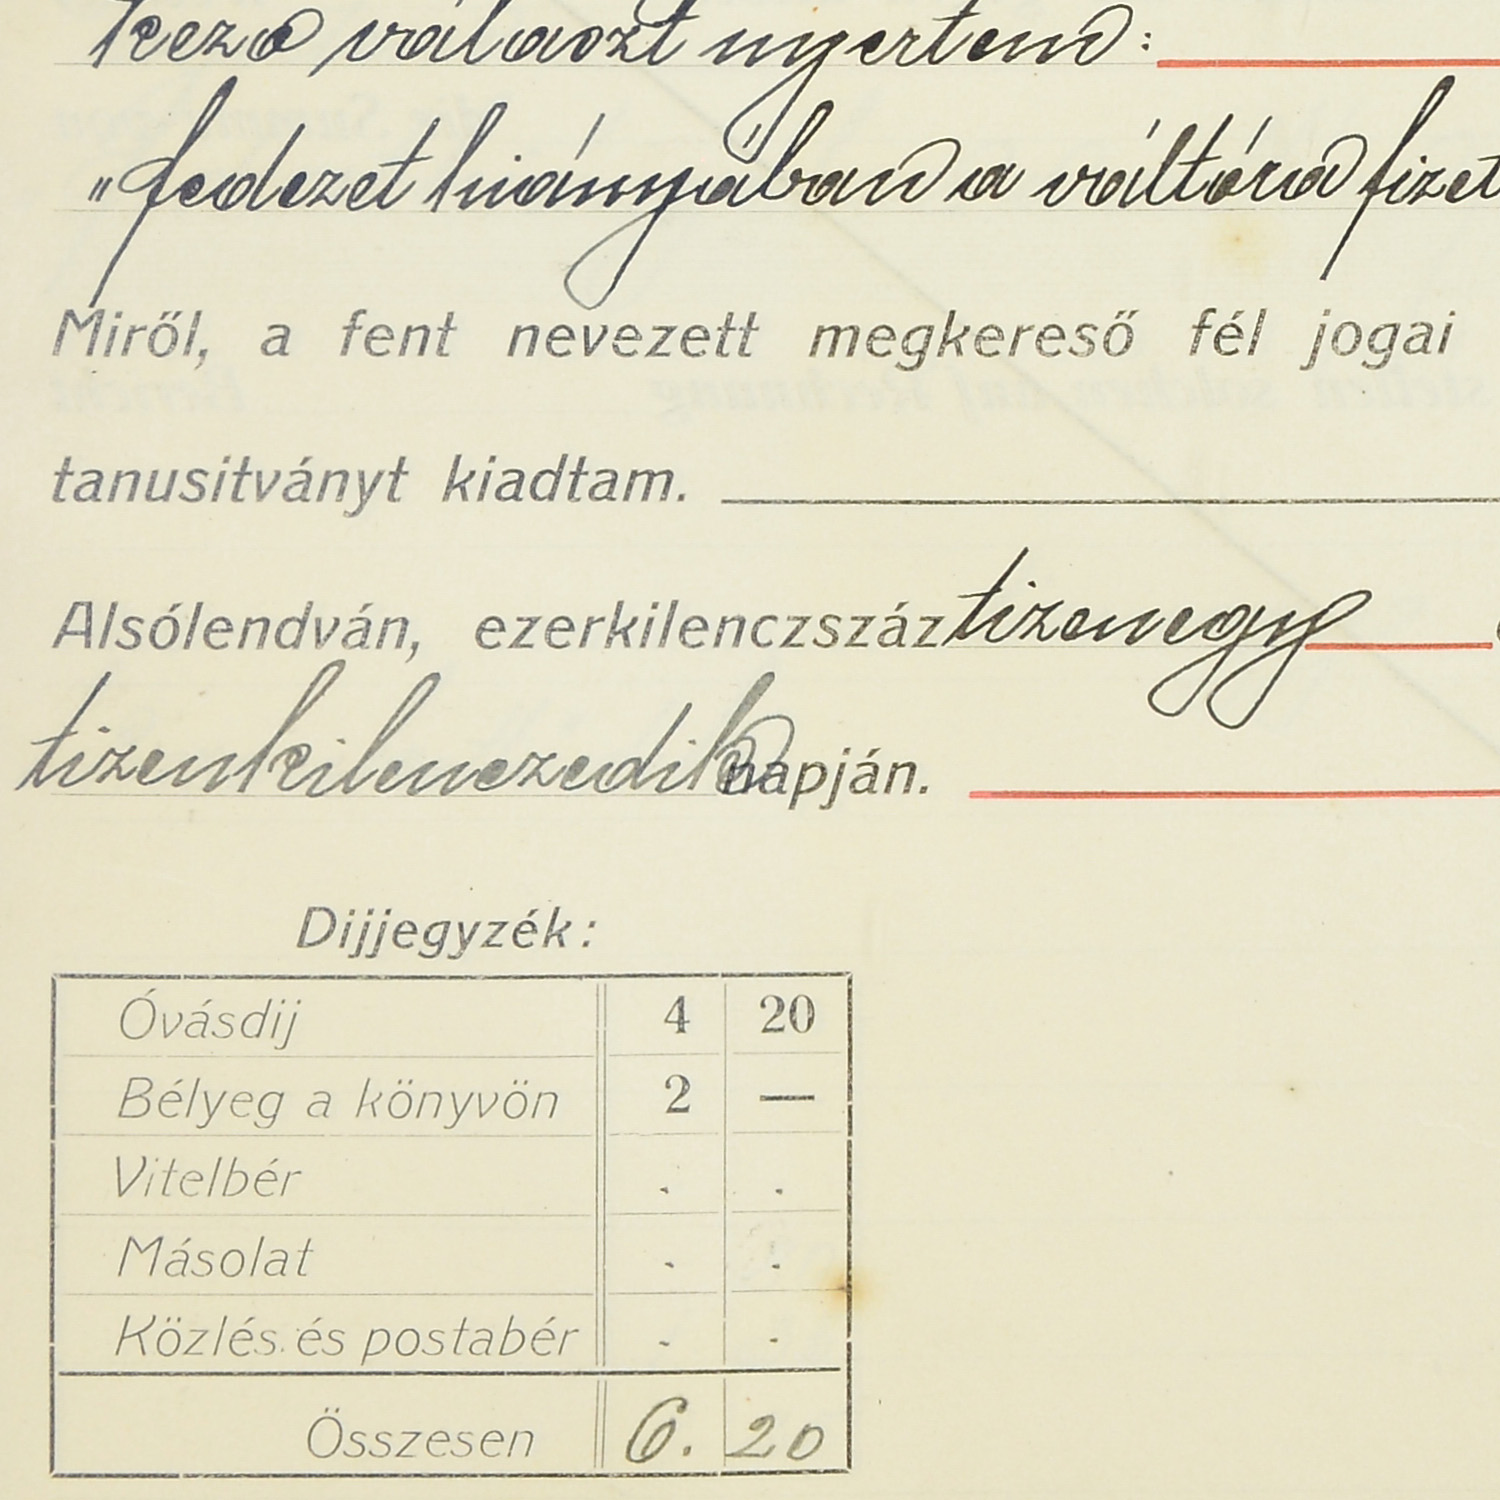 kező választ nyertem:
„fedezet hiányában a váltóra fizet
Miről, a fent nevezett megkereső fél jogai
tanusitványt kiadtam.
Alsólendván, ezerkilenczszáz tizenegy
tizenkilenczedik napján.
Dijjegyzék:
Óvásdij 4 20
Bélyeg a könyvön 2 —
Vitelbér . .
Másolat . .
Közlés és postabér . .
Összesen 6. 20